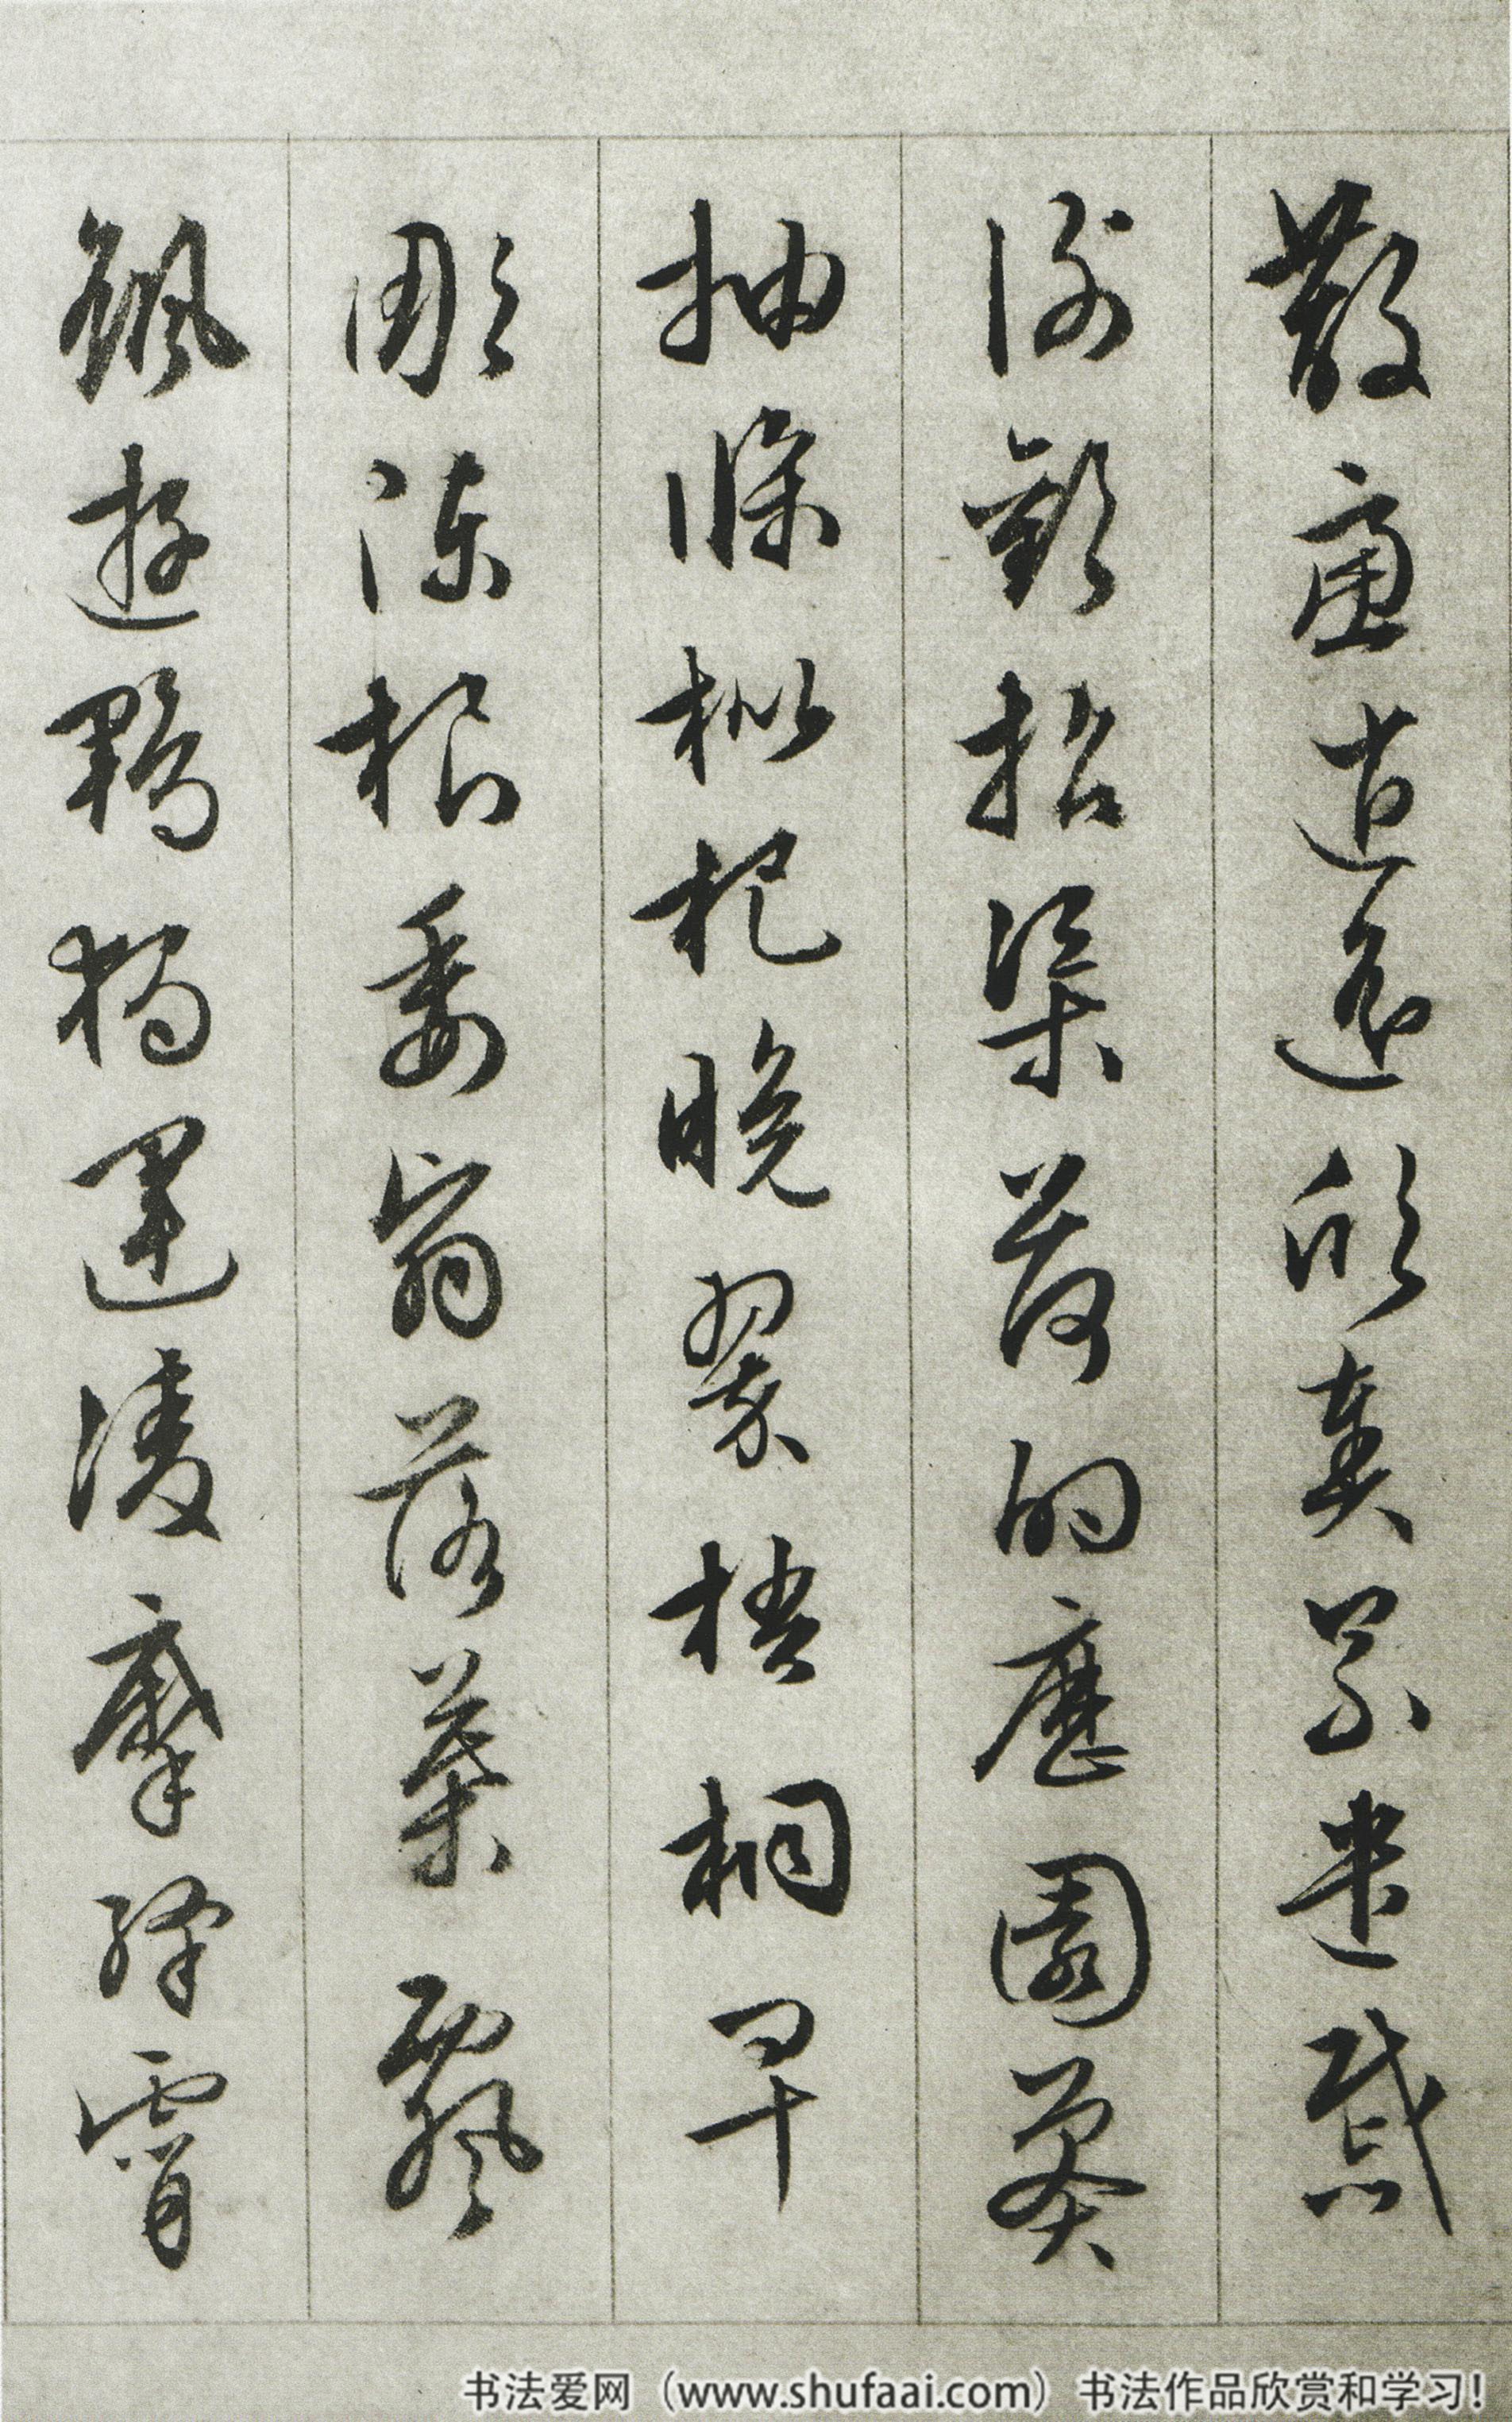 散慮逍遙欣奏累遣慼
謝歡招渠荷的歷園莽
抽條枇杷晚翠梧桐早
彫陳根委翳落葉飄
颻遊鵾獨運淩摩絳霄
书法爱网（www.shufaai.com）书法作品欣赏和学习！